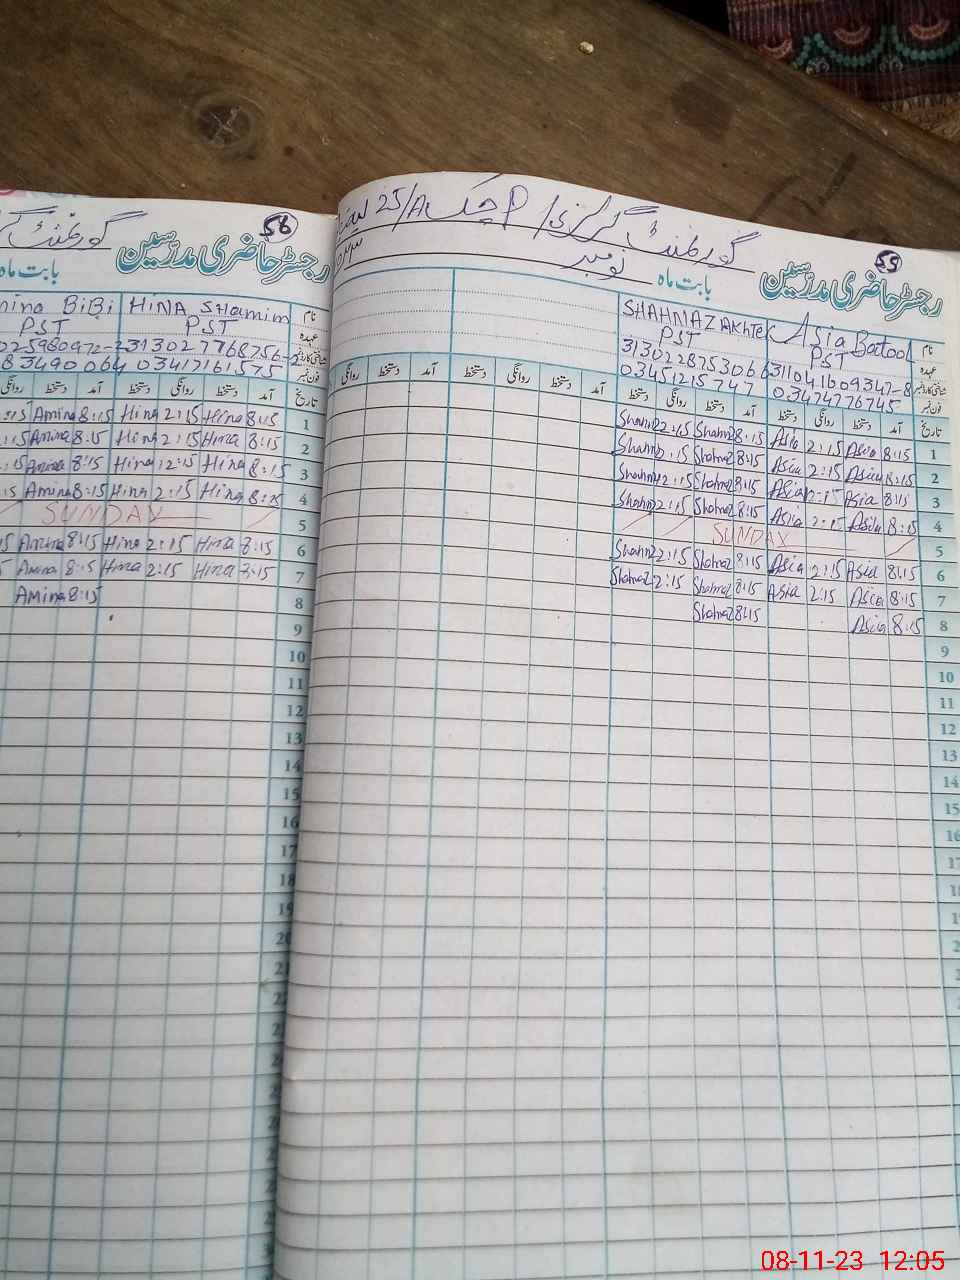 55
گورنمنٹ گرلز
P چک 25/A
رجسٹر حاضری مدرسین
بابت ماہ نومبر
نام Asia Batool SHAHNAZ AKhter
عہدہ PST PST
شناختی کارڈ نمبر 311041609347-8 3130228753066
فون نمبر 03474776745 03451215747
تاریخ آمد دستخط روانگی دستخط آمد دستخط روانگی دستخط آمد دستخط روانگی دستخط آمد دستخط روانگی
1 8:15 Asia 2:15 Asia 8:15 Shahnaz 2:15 Shahnaz
2 8:15 Asia 2:15 Asia 8:15 Shahnaz 2:15 Shahnaz
3 8:15 Asia 2:15 Asia 8:15 Shahnaz 2:15 Shahnaz
4 8:15 Asia 2:15 Asia 8:15 Shahnaz 2:15 Shahnaz
5 SUNDAY
6 8:15 Asia 2:15 Asia 8:15 Shahnaz 2:15 Shahnaz
7 8:15 Asia 2:15 Asia 8:15 Shahnaz 2:15 Shahnaz
8 8:15 Asia 8:15 Shahnaz
9
10
11
12
13
14
15
16
17
18
56
گورنمنٹ
رجسٹر حاضری مدرسین
بابت ماہ
نام HINA SHamim BiBi
عہدہ PST PST
شناختی کارڈ نمبر 313027768756-2
فون نمبر 03417161575
تاریخ آمد دستخط روانگی دستخط آمد دستخط روانگی
1 8:15 Hina 2:15 Hina 8:15 Amina
2 8:15 Hina 2:15 Hina 8:15 Amina
3 8:15 Hina 2:15 Hina 8:15 Amina
4 8:15 Hina 2:15 Hina 8:15 Amina
5 SUNDAY
6 8:15 Hina 2:15 Hina 8:15 Amina
7 8:15 Hina 2:15 Hina 8:15 Amina
8 8:15 Amina
9
10
11
12
13
14
15
16
17
18
19
20
21
08-11-23 12:05